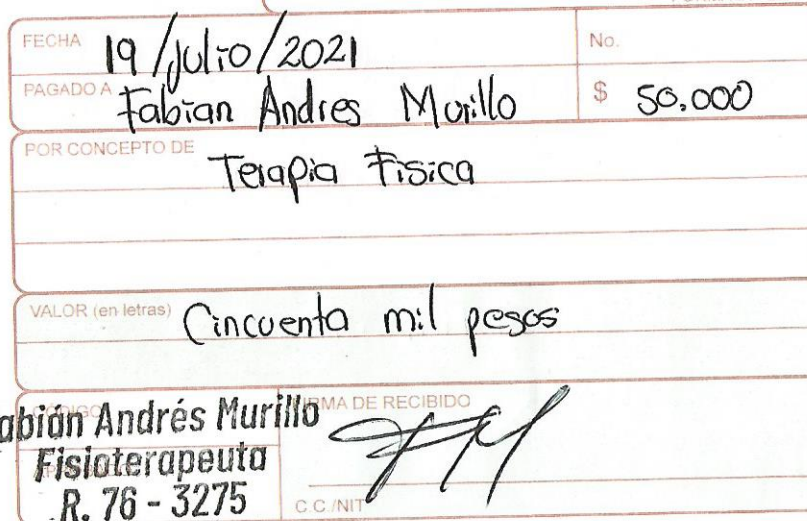 FECHA 19/Julio/2021 No.
PAGADO A Fabian Andres Morillo $ 50.000
POR CONCEPTO DE Terapia Fisica
VALOR (en letras) Cincuenta mil pesos
CÓDIGO FIRMA DE RECIBIDO
abián Andrés Murillo
Fisioterapeuta
R. 76 - 3275
C.C./NIT